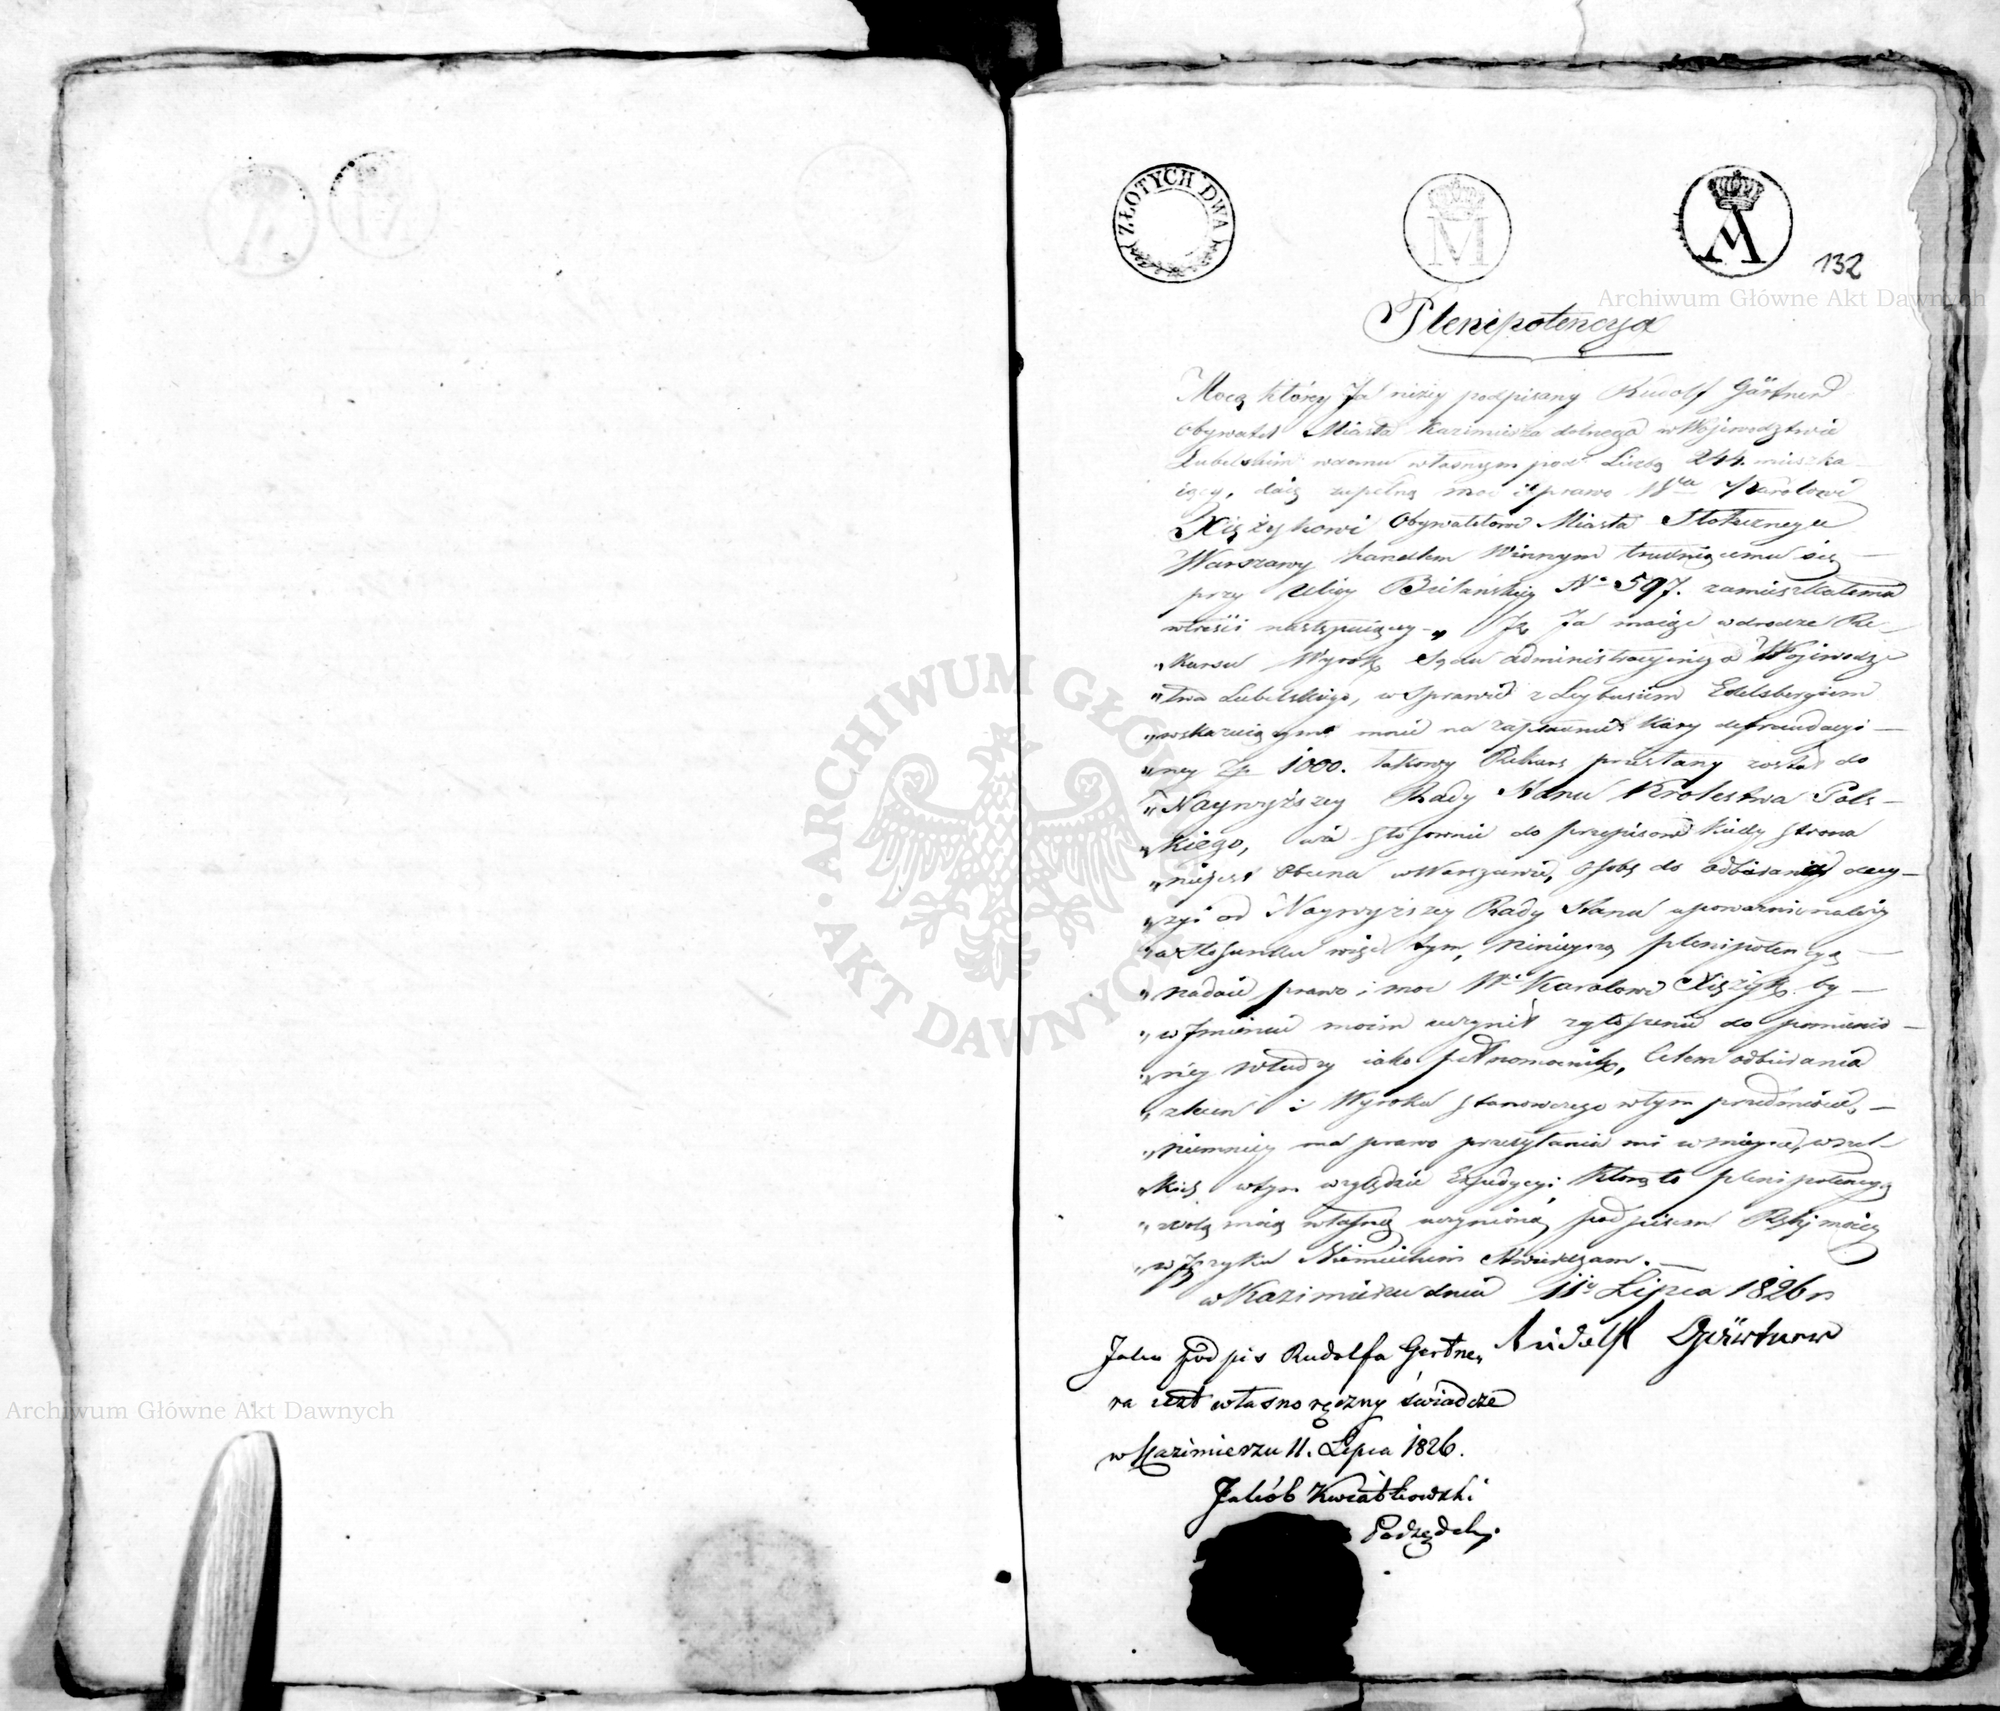 ZŁOTYCH DWA
M
A
132
Plenipotencya
Mocą którey Ja niżey podpisany Rudolf Gärtner
Obywatel Miasta Kazimierza dolnego w Wojewodztwie
Lubelskim w domu własnym pod Liczbą 244. mieszka-
iący, daię zupełną moc i prawo Karolowi
Xiężykowi Obywatelowi Miasta Stołecznego
Warszawy handlem Winnym trudniącemu się —
przy Ulicy Bielańskiey No 597. zamieszkałemu
w treści następuiącey - „ Iż Ja maiąc w drodze Re-
„ kursu Wyrok Sądu administracyinego Wojewodz-
„ twa Lubelskiego, w Sprawie z Leybusiem Edelsbergiem
„ wskazuiącym mnie na zapłacenie Kary defraudacyi-
„ ney Zp 1000. takowy Rekurs przesłany został do
„ Naywyższey Rady Stanu Krolestwa Pols-
„ kiego, stosownie do przepisow kiedy strona
„ nie jest Obecna w Warszawie, osobę do odbierania decy-
„ zyi od Naywyższey Rady Stanu upoważnić należy
„ w Stosunku więc tym, ninieyszą plenipotencyą —
„ nadaię prawo i moc Wu Karolowi Xiężyk by —
„ w Imieniu moim uczynił zgłoszenie do pomienio-
„ ney Władzy iako pełnomocnik, Celem odbierania
„ i Wyroku stanowczego w tym przedmiocie, —
„ niemniey ma prawo przesyłania mi w mieysce, wszel-
„ kich w tym względzie Expedycyi, którą to plenipotencyą
„ wolą moią własną uczynioną podpisem Ręki moiey
„ w Języku Niemieckim stwierdzam. —
w Kazimierzu dnia 11go Lipca 1826 r
Rudolf Gärtner
Jako podpis Rudolfa Gertne-
ra iest własnoręczny świadcze
w Kazimierzu 11. Lipca 1826.
Jakób Kwiatkowski
Podsędek.
ARCHIWUM GŁÓWNE AKT DAWNYCH
Archiwum Główne Akt Dawnych
Archiwum Główne Akt Dawnych